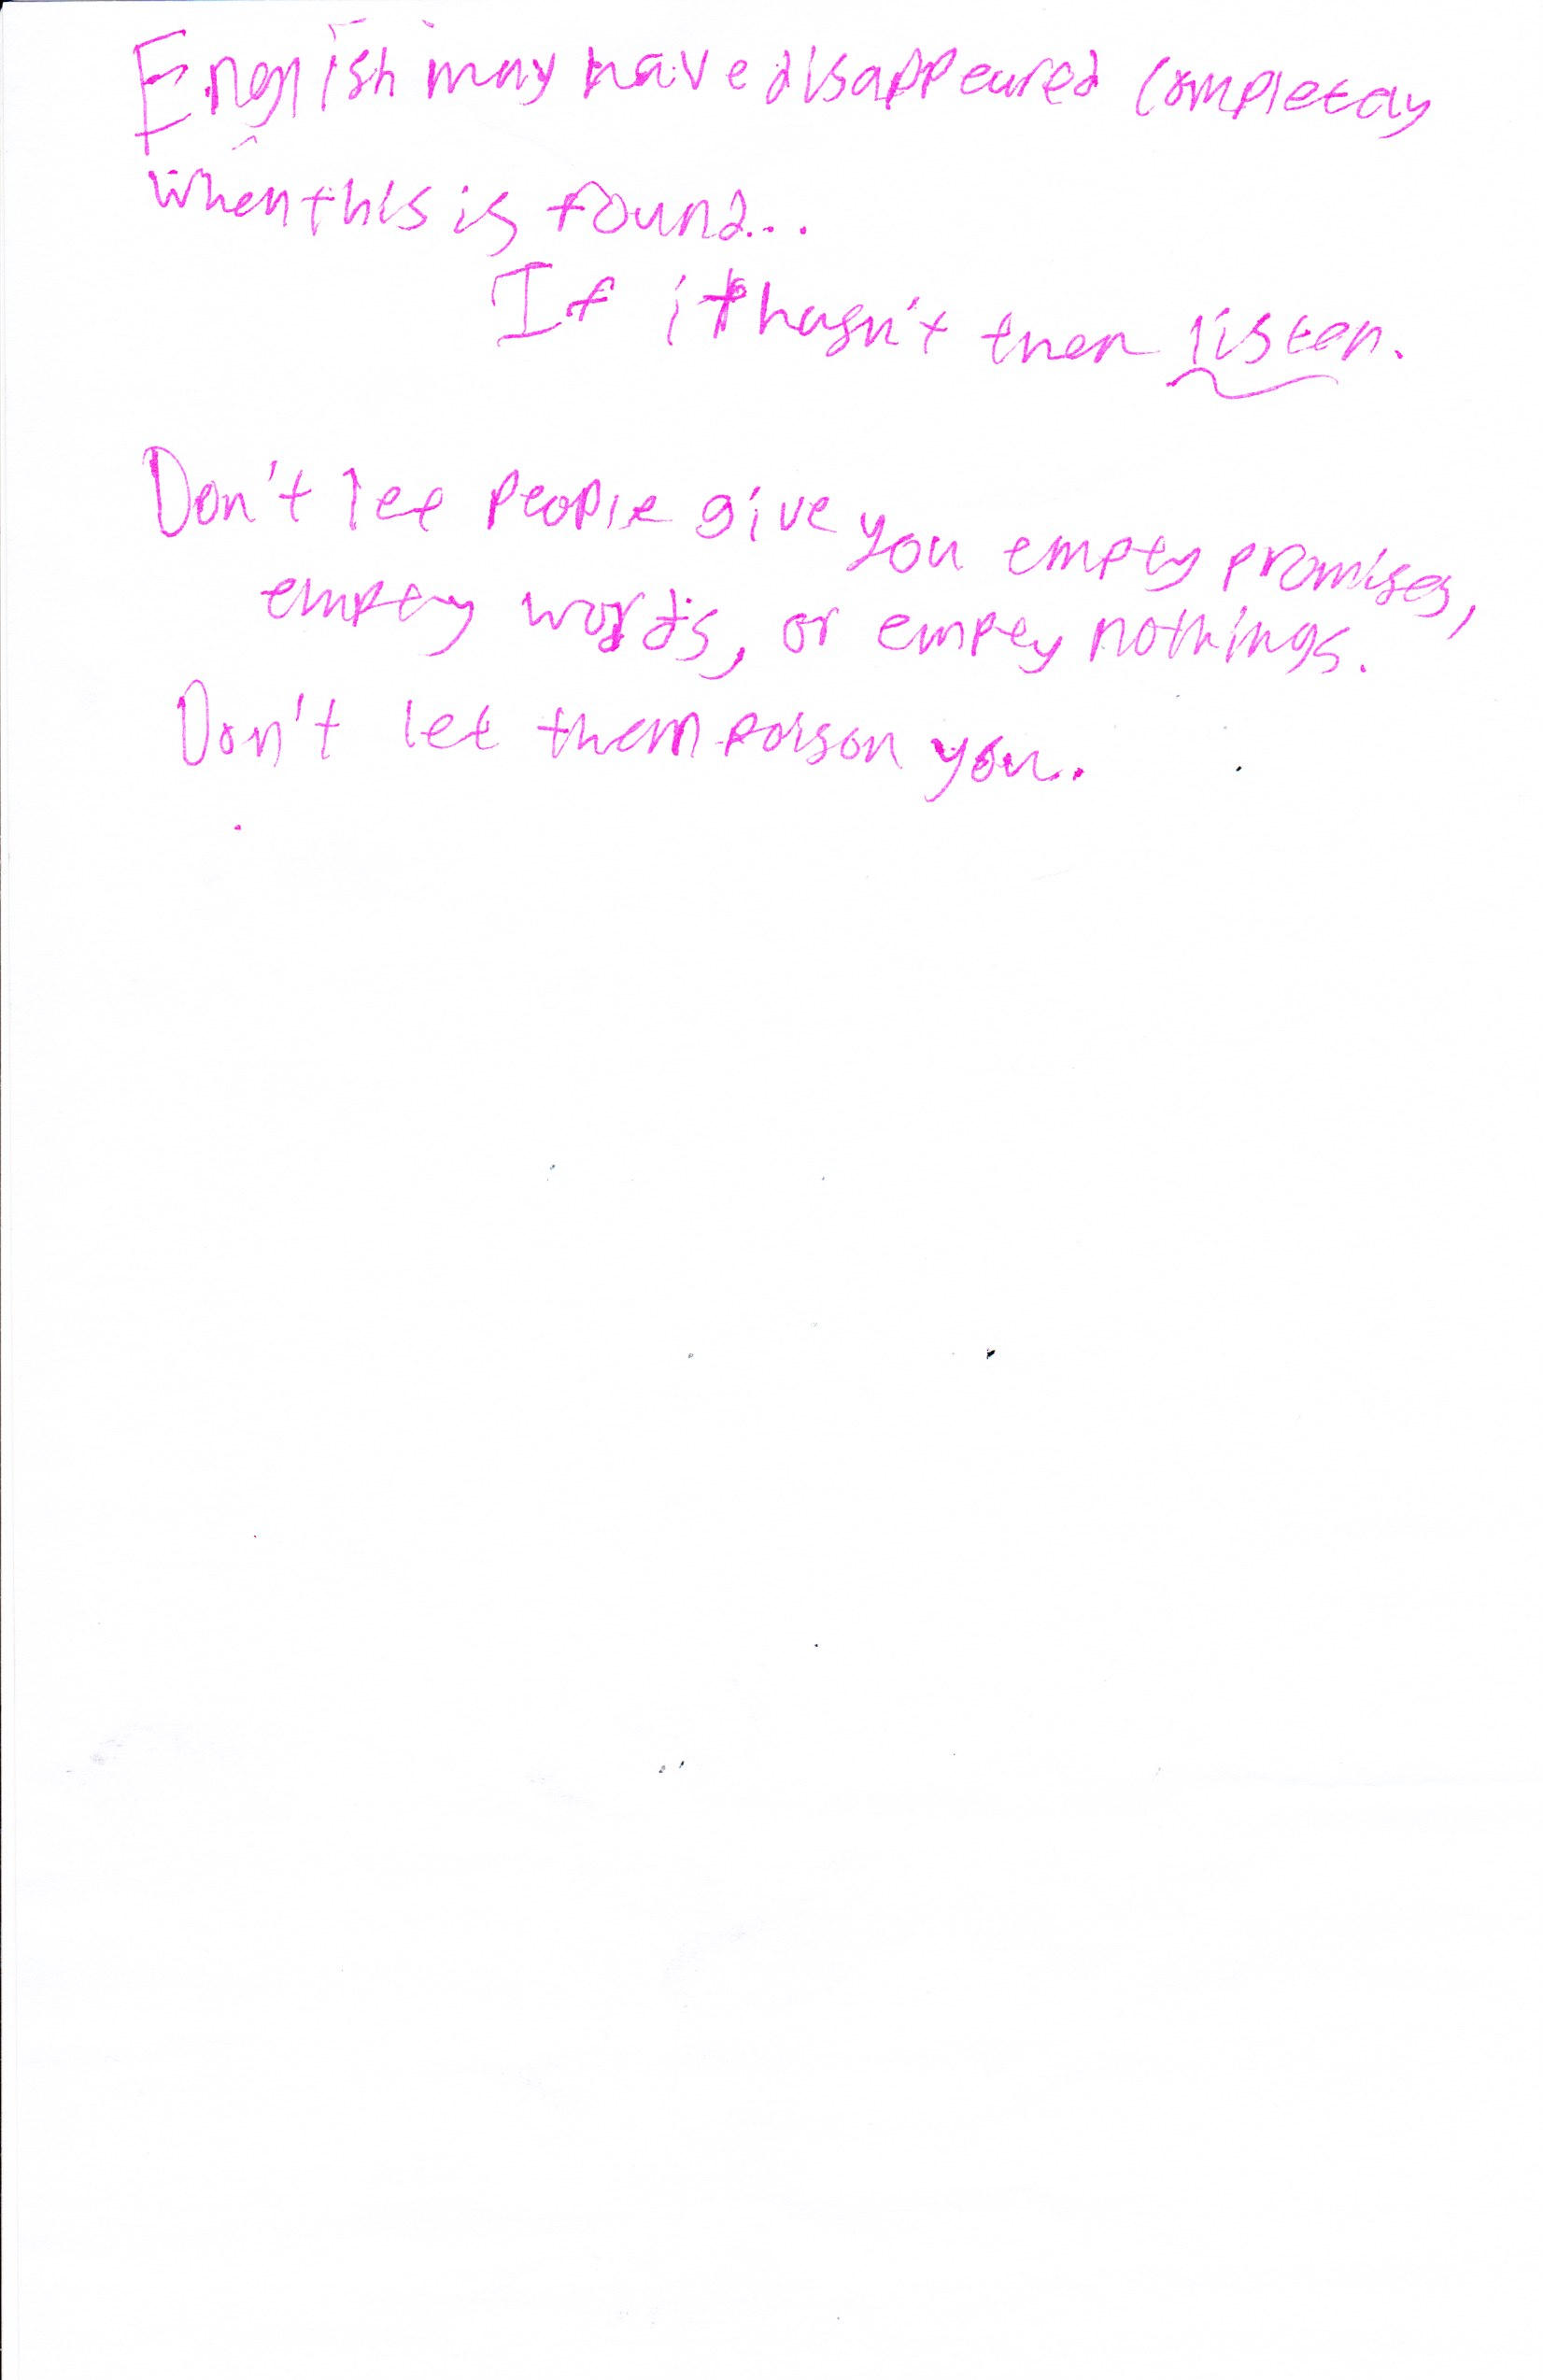 English may have disappeared completay
when this is found...
If it hasn't then listen.
Don't let people give you empty promises,
empty words, or empty nothings.
Don't let them poison you.